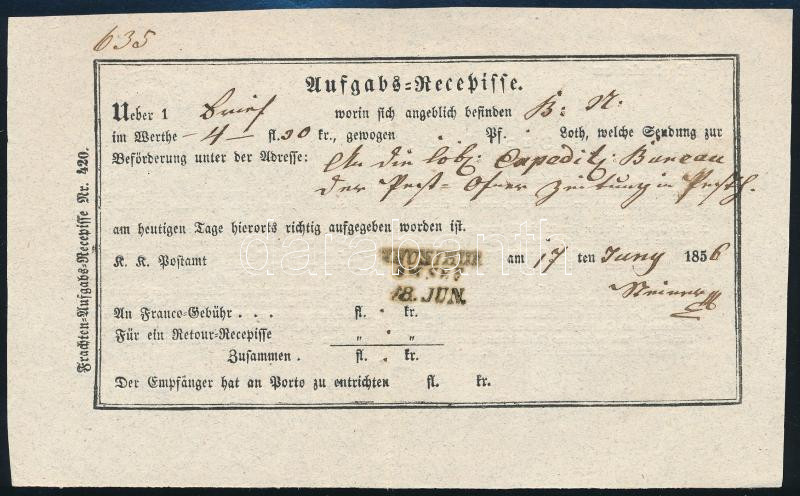 635
Aufgabs=Recepisse.
Ueber 1 Brief worin sich angeblich befinden B: N:
im Werthe - 4 - fl. 30 kr., gewogen Pf. Loth, welche Sendung zur
Beförderung unter der Adresse: An die löbl: Expedit: Bureau
der Pest=Ofner Zeitung in Pesth.
am heutigen Tage hierorts richtig aufgegeben worden ist.
K. K. Postamt am 17 ten Juny 1856
18. JUN.
An Franco=Gebühr . . . fl. kr.
Für ein Retour=Recepisse " "
Zusammen . fl. kr.
Der Empfänger hat an Porto zu entrichten fl. kr.
Frachten=Aufgabs=Recepisse Nr. 420.
darabanth